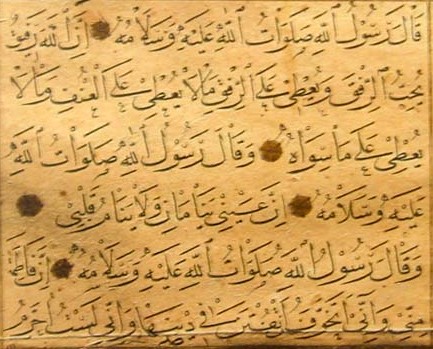 قَالَ رَسُولُ اللهِ صَلَوَاتُ اللهِ عَلَيْهِ وَسَلَامُهُ إِنَّ اللهَ رَفِيقٌ
يُحِبُّ الرِّفْقَ وَيُعْطِي عَلَى الرِّفْقِ مَا لَا يُعْطِي عَلَى الْعُنْفِ وَمَا لَا
يُعْطِي عَلَى مَا سِوَاهُ وَقَالَ رَسُولُ اللهِ صَلَوَاتُ اللهِ
عَلَيْهِ وَسَلَامُهُ إِنَّ عَيْنَيَّ تَنَامَانِ وَلَا يَنَامُ قَلْبِي
وَقَالَ رَسُولُ اللهِ صَلَوَاتُ اللهِ عَلَيْهِ وَسَلَامُهُ إِنَّ فَاطِمَةَ
مِنِّي وَإِنِّي أَتَخَوَّفُ أَنْ تُفْتَنَ فِي دِينِهَا وَإِنِّي لَسْتُ أُحَرِّمُ